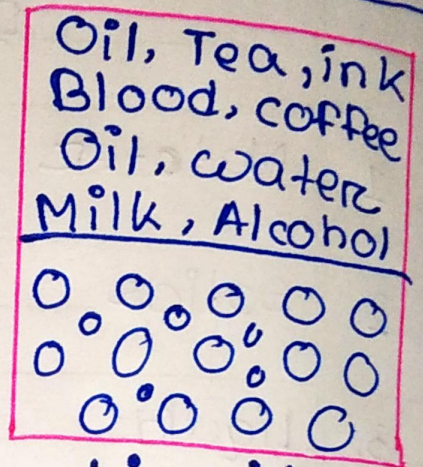 Oil, Tea, ink
Blood, coffee
Oil, water
Milk, Alcohol